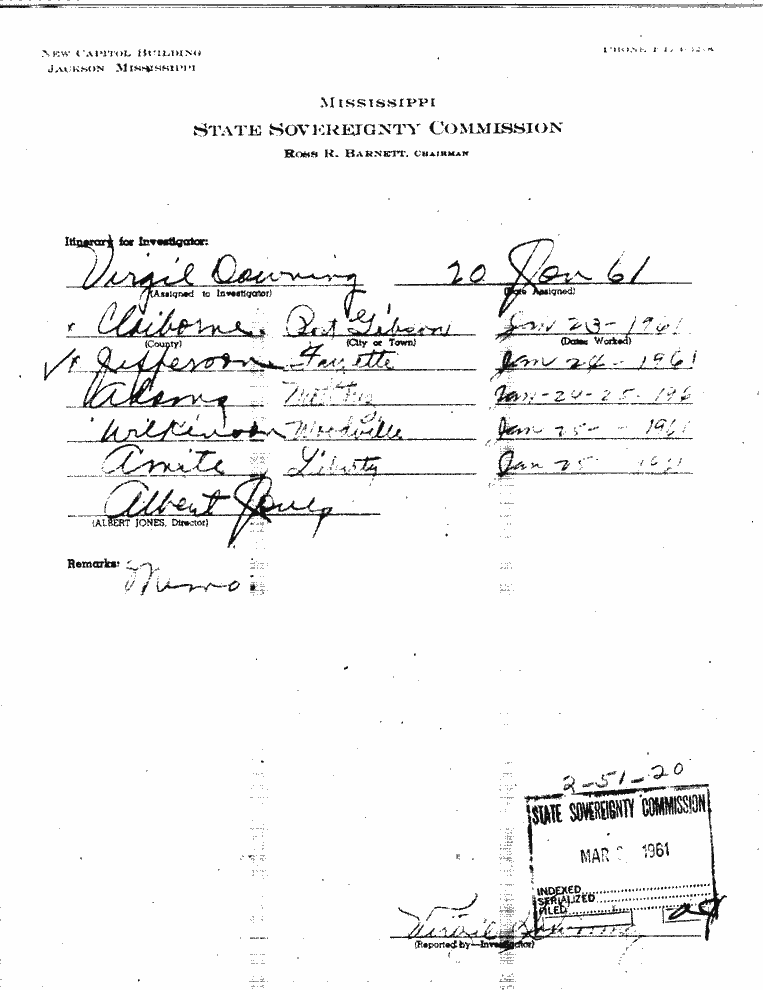 NEW CAPITOL BUILDING
JACKSON MISSISSIPPI
PHONE
MISSISSIPPI
STATE SOVEREIGNTY COMMISSION
ROSS R. BARNETT, CHAIRMAN
Itinerary for Investigator:
Virgil Downing 20 Jan 61
(Assigned to Investigator) (Date Assigned)
x Claiborne Port Gibson Jan 23-1961
(County) (City or Town) (Dates Worked)
✓x Jefferson Fayette Jan 24-1961
Adams Jan-24-25-196
Wilkinson Woodville Jan 25- -1961
Amite Liberty Jan 25 1961
Albert Jones
(ALBERT JONES, Director)
Remarks:
Memo.
2-51-20
STATE SOVEREIGNTY COMMISSION
MAR 1961
INDEXED
SERIALIZED
FILED
Virgil Downing
(Reported by—Investigator)